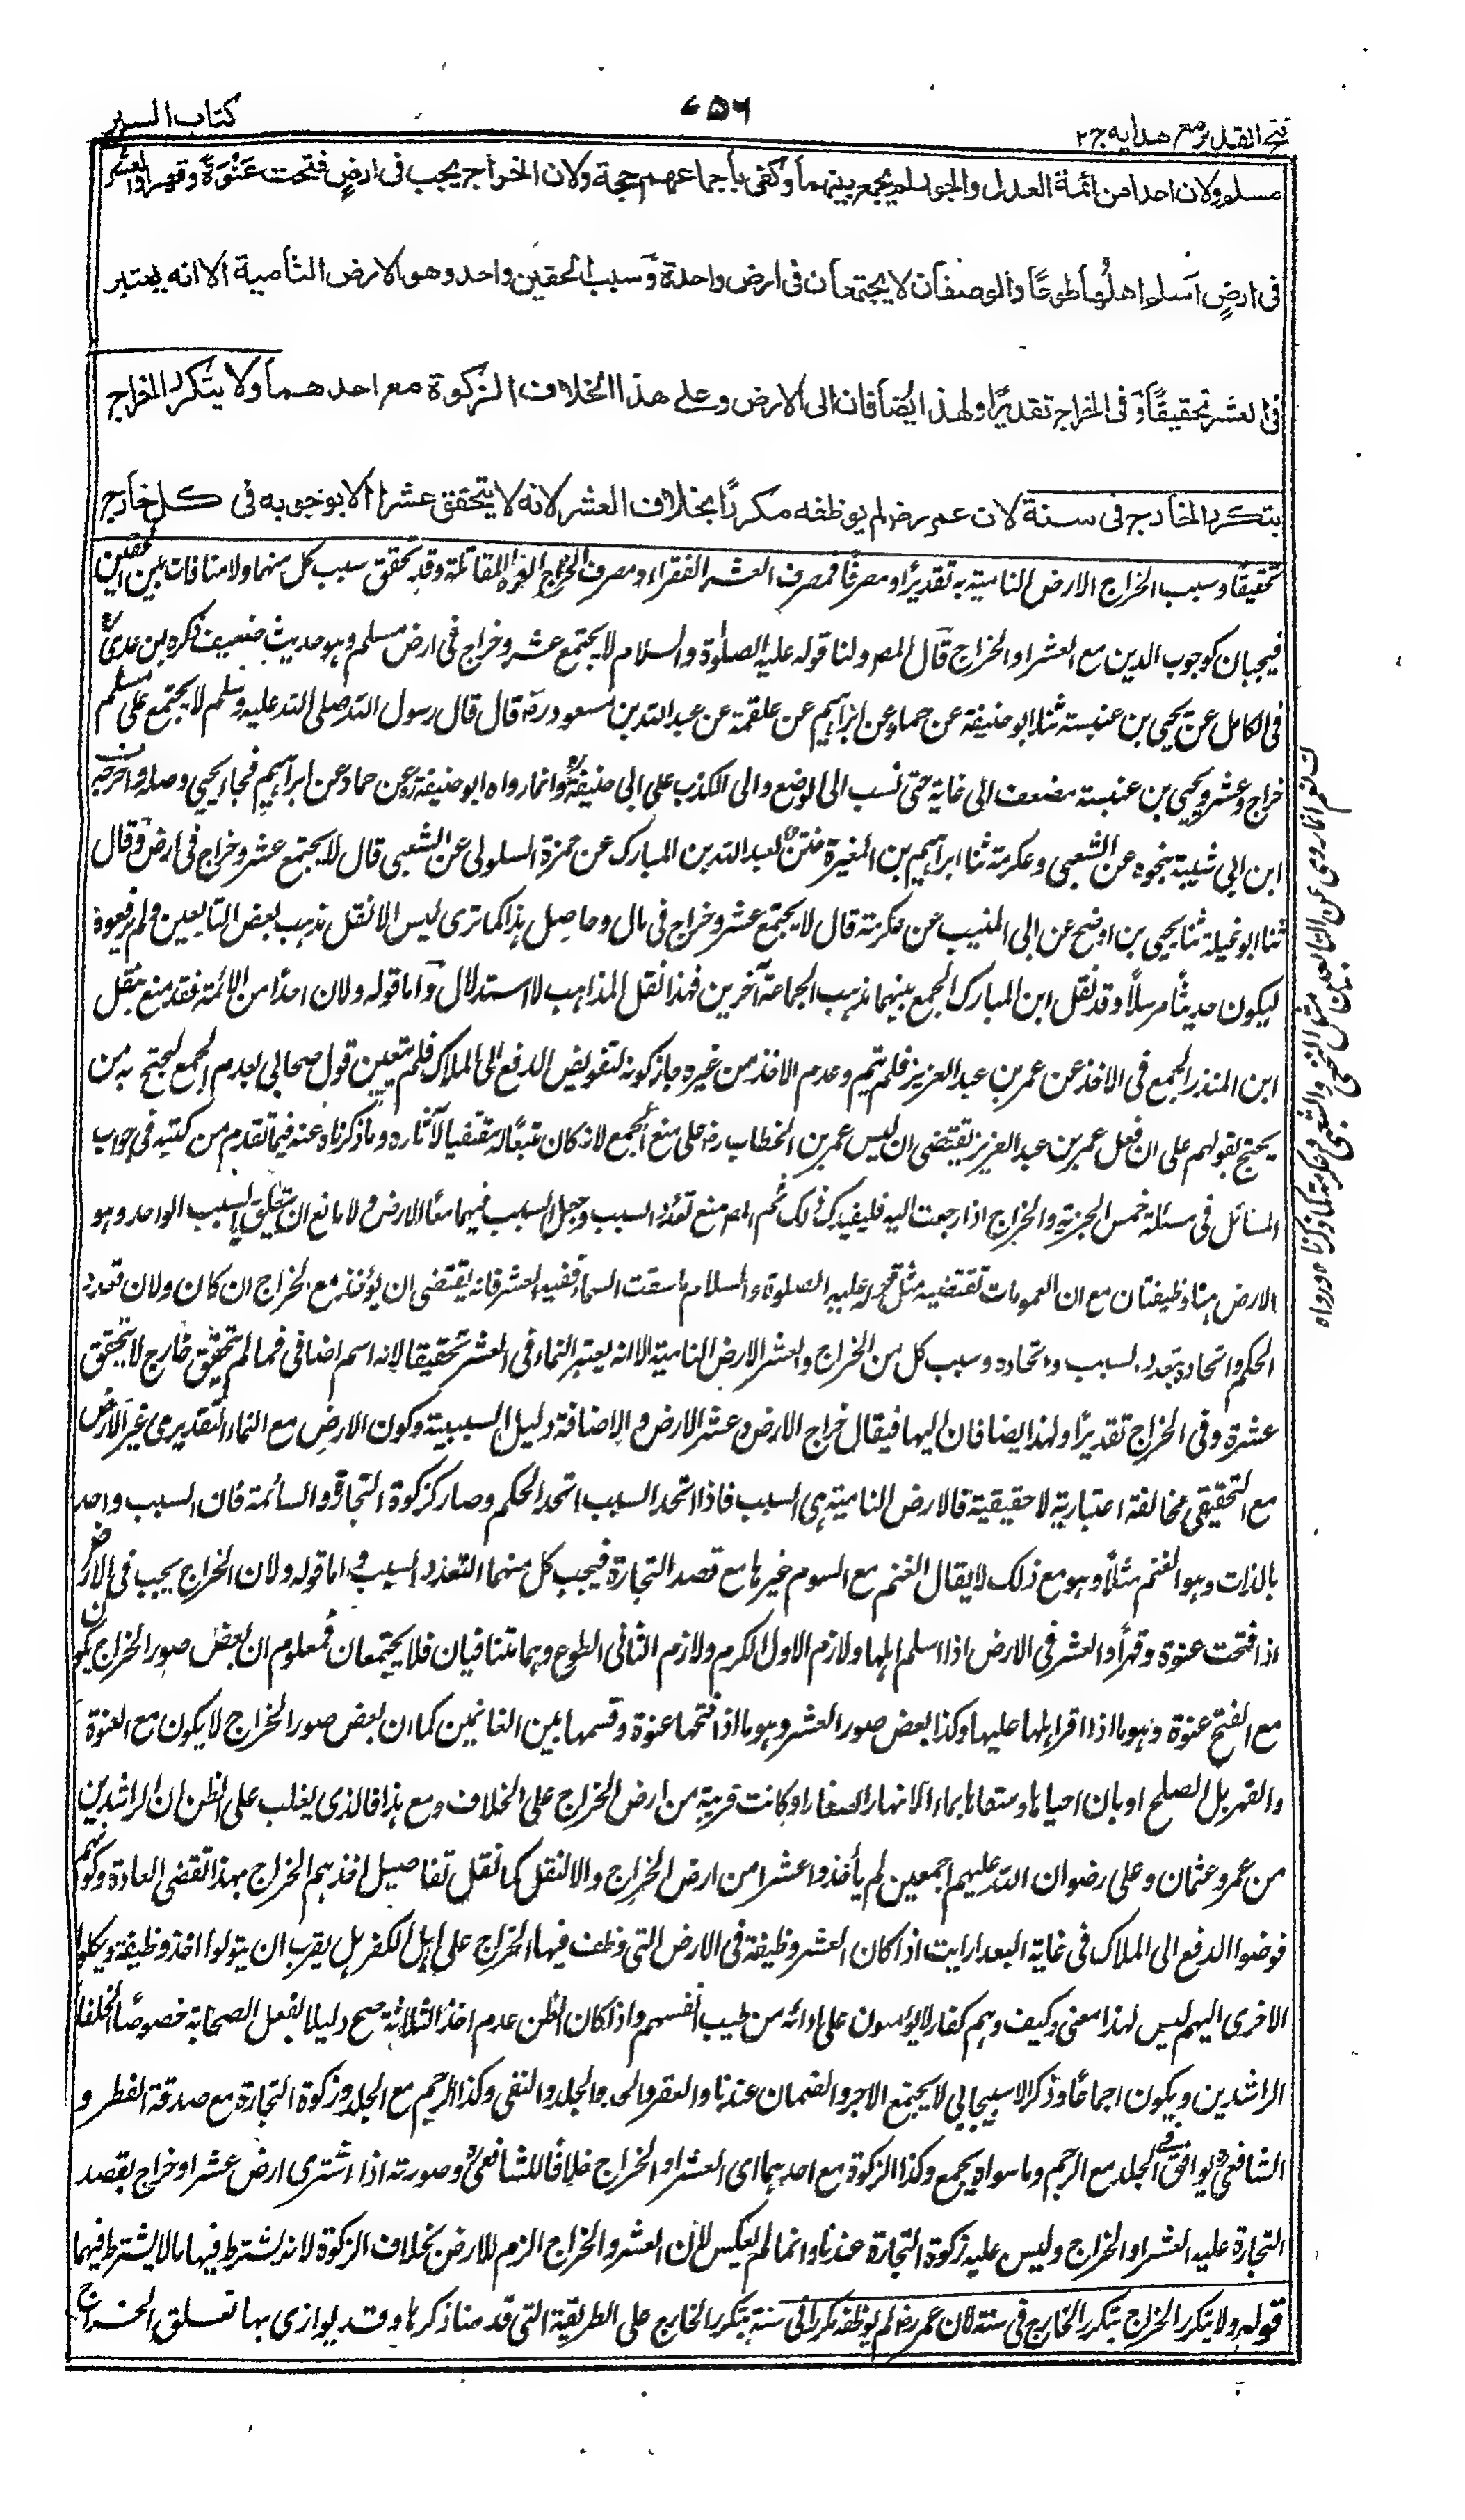 فتح القدير مع هدايه ج ٢
٧٥٦
كتاب السير
مسلم ولان احدا من ائمة العدل والجور لم يجمع بينهما وكفى باجماعهم حجة ولان الخراج يجب فى ارضٍ فتحت عَنْوَةً وقهرا والعشر
فى ارضٍ اسلم اهلُها طوعًا والوصفان لا يجتمعان فى ارض واحدة وسبب الحقين واحد وهو الارض النامية الا انه يعتبر
فى العشر تحقيقًا وفى الخراج تقديرًا ولهذا يضافان الى الارض وعلى هذا الخلاف الزكوة مع احدهما ولا يتكرر الخراج
بتكرر الخارج فى سنة لان عمر رض لم يوظفه مكررًا بخلاف العشر لانه لا يتحقق عشرا الا بوجوبه فى كل خارج
تحقيقًا وسبب الخراج الارض النامية به تقديرًا ومصرفًا فمصرف العشر الفقراء ومصرف الخراج الغزاة المقاتلة وقد تحقق سبب كل منهما ولا منافات بين الحقين
فيجبان كوجوب الدين مع العشر او الخراج قال المصر ولنا قوله عليه الصلوٰة والسلام لا يجتمع عشر وخراج فى ارض مسلم وهو حديث ضعيف ذكره ابن عدى
فى الكامل عن يحيى بن عنبسة ثنا ابو حنيفة عن حماد عن ابراهيم عن علقمة عن عبد الله بن مسعود رض قال قال رسول الله صلى الله عليه وسلم لا يجتمع على مسلم
خراج وعشر ويحيى بن عنبسة مضعف الى غاية حتى نسب الى الوضع والى الكذب على ابى حنيفة وانما رواه ابو حنيفة عن حماد عن ابراهيم فجاء يحيى وصله واخرج
ابن ابى شيبة نحوه عن الشعبى وعكرمة ثنا ابراهيم بن المغيرة ختن لعبد الله بن المبارك عن حمزة السلولى عن الشعبى قال لا يجتمع عشر وخراج فى ارض وقال
ثنا ابو نميلة ثنا يحيى بن اوضح عن ابى المنيب عن عكرمة قال لا يجتمع عشر وخراج فى مال وحاصل هذا كما ترى ليس الا نقل مذهب بعض التابعين ولم يرفعوه
ليكون حديثًا مرسلًا وقد نقل ابن المبارك الجمع بينهما مذهب الجماعة آخرين فهذا نقل المذاهب لا استدلال واما قوله ولان احدًا من الائمة فقد منع بنقل
ابن المنذر الجمع فى الاخذ عن عمر بن عبد العزيز فلم يتم وعدم الاخذ من غيره جاز كونه لتفويض الدفع الى الملاك فلم يتعين قول صحابى بعدم الجمع ليحتج به من
يحتج بقولهم على ان فعل عمر بن عبد العزيز يقتضى ان ليس عمر بن الخطاب رض على منع الجمع لانه كان متبعًا له مقتفيا لآثاره وما ذكرناه عنه فيما تقدم من كتبه فى جواب
المسائل فى مسئلة خمس الجزية والخراج اذا رجعت اليه فليفيدك ذلك ثم المصر منع تعدد السبب وجعل السبب فيهما معًا الارض ولا مانع ان يتعلق بالسبب الواحد وهو
الارض هنا وظيفتان مع ان العمومات تقتضيه مثل قوله عليه الصلوٰة والسلام ما سقت السماء ففيه العشر فانه يقتضى ان يؤخذ مع الخراج ان كان ولان تعدد
الحكم واتحاده بتعدد السبب واتحاده وسبب كل من الخراج والعشر الارض النامية الا انه يعتبر النماء فى العشر تحقيقا لانه اسم اضافى فما لم يتحقق خارج لا يتحقق
عشره وفى الخراج تقديرًا ولهذا يضافان اليها فيقال خراج الارض وعشر الارض والاضافة دليل السببية وكون الارض مع النماء التقديرى غير الارض
مع التحقيقى مخالفة اعتبارية لا حقيقية فالارض النامية هى السبب فاذا اتحد السبب اتحد الحكم وصار كزكوة التجارة والسائمة فان السبب واحد
بالذات وهو الغنم مثلًا وهو مع ذلك لا يقال الغنم مع السوم غيرها مع قصد التجارة فيجب كل منهما لتعدد السبب واما قوله ولان الخراج يجب فى الارض
اذا فتحت عنوة وقهرًا والعشر فى الارض اذا اسلم اهلها ولازم الاول الكره ولازم الثانى الطوع وهما متنافيان فلا يجتمعان فمعلوم ان بعض صور الخراج يكون
مع الفتح عنوة وهو ما اذا اقر اهلها عليها وكذا بعض صور العشر وهو ما اذا فتحها عنوة وقسمها بين الغانمين كما ان بعض صور الخراج لا يكون مع العنوة
والقهر بل للصلح او بان احياها وسقاها بماء الانهار الصغار او كانت قريبة من ارض الخراج على الخلاف ومع هذا فالذى يغلب على الظن ان الراشدين
من عمر وعثمان وعلى رضوان الله عليهم اجمعين لم يأخذوا عشرا من ارض الخراج والا لنقل كما نقل تفاصيل اخذهم الخراج بهذا تقضى العادة وكونهم
فوضوا الدفع الى الملاك فى غاية البعد ارايت اذا كان العشر وظيفة فى الارض التى وظف فيها الخراج على اهل الكفر هل يقرب ان يتولوا اخذ وظيفة ويكلوا
الاخرى اليهم ليس لهذا معنى وكيف وهم كفار لا يؤمنون على ادائه من طيب انفسهم واذا كان الظن عدم اخذ الثلاثة صح دليلا بفعل الصحابة خصوصًا الخلفاء
الراشدين ويكون اجماعًا وذكر الاسبيجابى لا يجتمع الاجر والضمان عندنا والعقر والحد والجلد والنفى وكذا الرجم مع الجلد وزكوة التجارة مع صدقة الفطر و
الشافعى يوافق فى الجلد مع الرجم وما سواه يجمع وكذا الزكوة مع احدهما اى العشر او الخراج خلافًا للشافعى وصورته اذا اشترى ارض عشر او خراج بقصد
التجارة عليه العشر او الخراج وليس عليه زكوة التجارة عندنا وانما لم يعكس لان العشر والخراج الزم للارض بخلاف الزكوة لانه يشترط فيها ما لا يشترط فيهما
قوله ولا يتكرر الخراج بتكرر الخارج فى سنة لان عمر رض لم يوظفه مكررا فى سنة بتكرر الخارج على الطريقة التى قدمنا ذكرها وقد يوازى بها تعلق الخراج